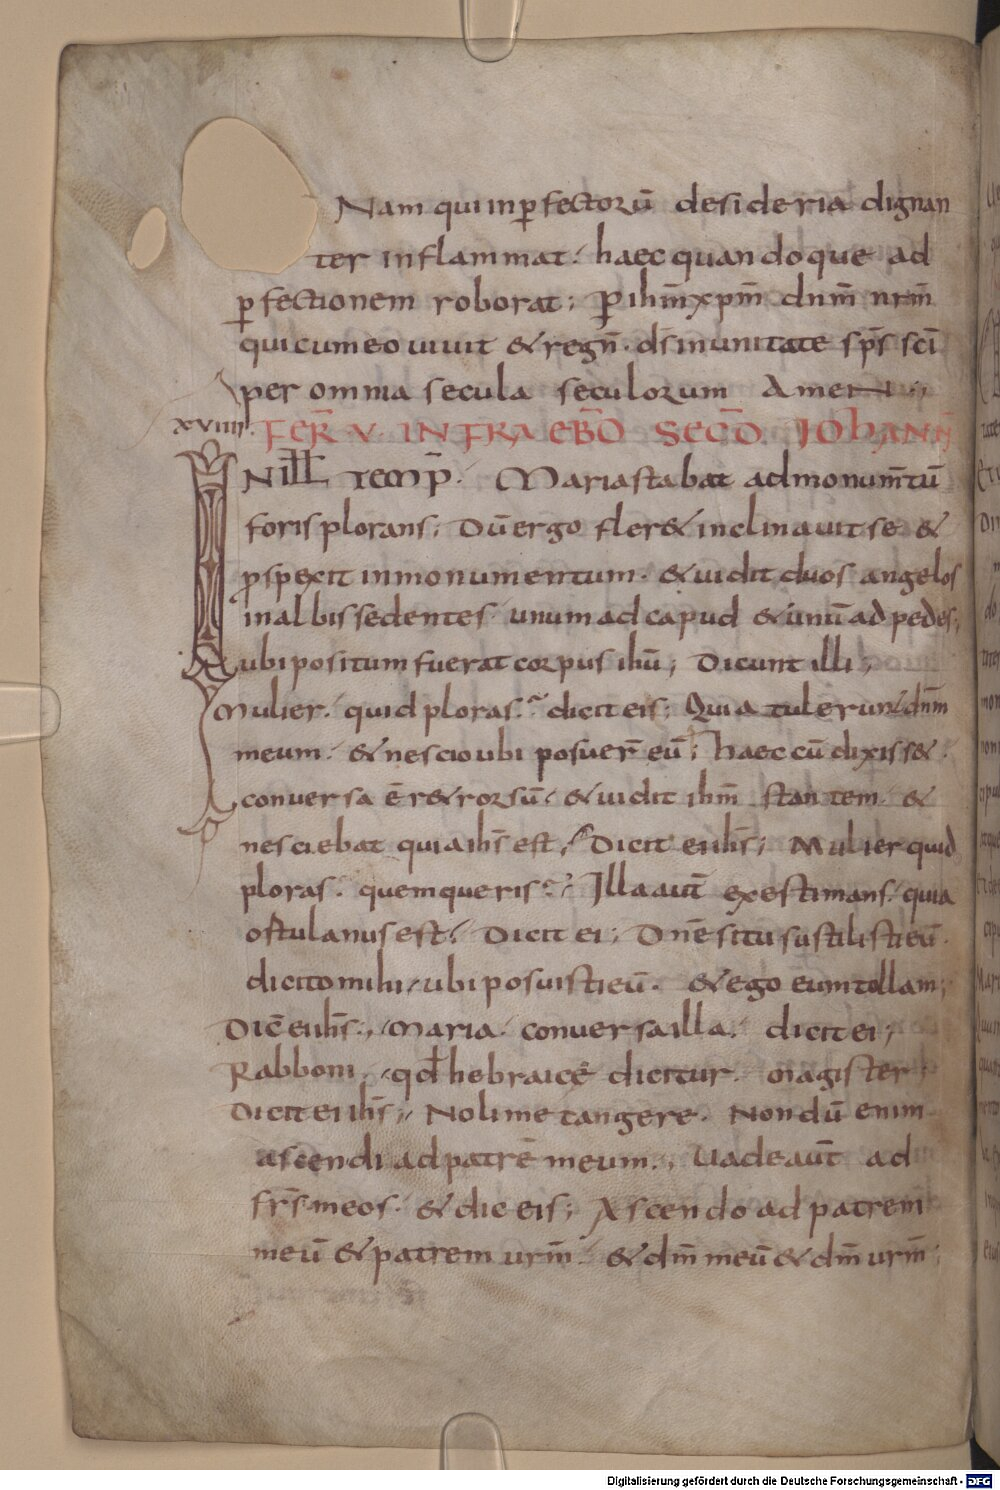 Nam qui inꝑfectorū desideria dignan
ter inflammat. haec quandoque ad
ꝑfectionem roborat; Ꝑ ihm̄ xpm̄ dnm̄ nrm̄
qui cum eo uiuit & regn̄. ds̄ in unitate sps̄ sci̅
per omnia secula seculorum Amen
xviiii. FER̄ V. INFRA EBD̄O SECD̄. IOhANN̄
IN ILL TEMP̄. Maria stabat ad monum̄tū
foris plorans; Dū ergo fler& inclinauit se &
ꝓspexit in monumentum. & uidit duos angelos
in albis sedentes. unum ad capud & unū ad pedes;
ubi positum fuerat corpus ihū; Dicunt illi;
Mulier. quid ploras. dicit eis; Quia tulerun dnm̄
meum. & nescio ubi posuer̄ eū; haec cū dixiss&.
conuersa ē r&rorsū. & uidit ihm̄ stantem. &
nesciebat quia ihs̄ est; Dicit ei ihs̄; Mulier quid
ploras. quem queris. Illa aut̄ exestimans. quia
ostulanus est. Dicit ei; Dn̄e si tu sustilisti eū.
dicito mihi. ubi posuisti eū. & ego eum tollam;
Dic̄ ei ihs̄; Maria. conuersa illa. dicit ei;
Rabboni. qd̄ hebraicę dicitur. magister;
Dicit ei ihs̄; Noli me tangere. Nondū enim
ascendi ad patrē meum; Uade aut̄ ad
frs̄ meos. & dic eis; Ascendo ad patrem
meū & patrem urm̄. & dm̄ meū & dm̄ urm̄;
Digitalisierung gefördert durch die Deutsche Forschungsgemeinschaft - DFG